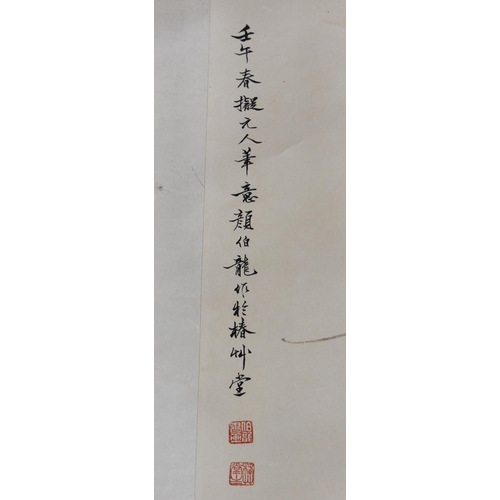 壬午春擬元人筆意顏伯龍作於椿艸堂